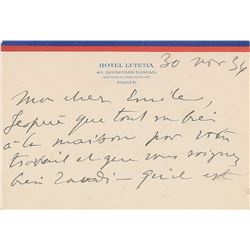 HOTEL LUTETIA
43, BOULEVARD RASPAIL
PARIS
30 nov 34
Mon cher Emile,
J'espère que tout va bien
à la maison pour votre
travail et que vous soignez
bien — qu'il est